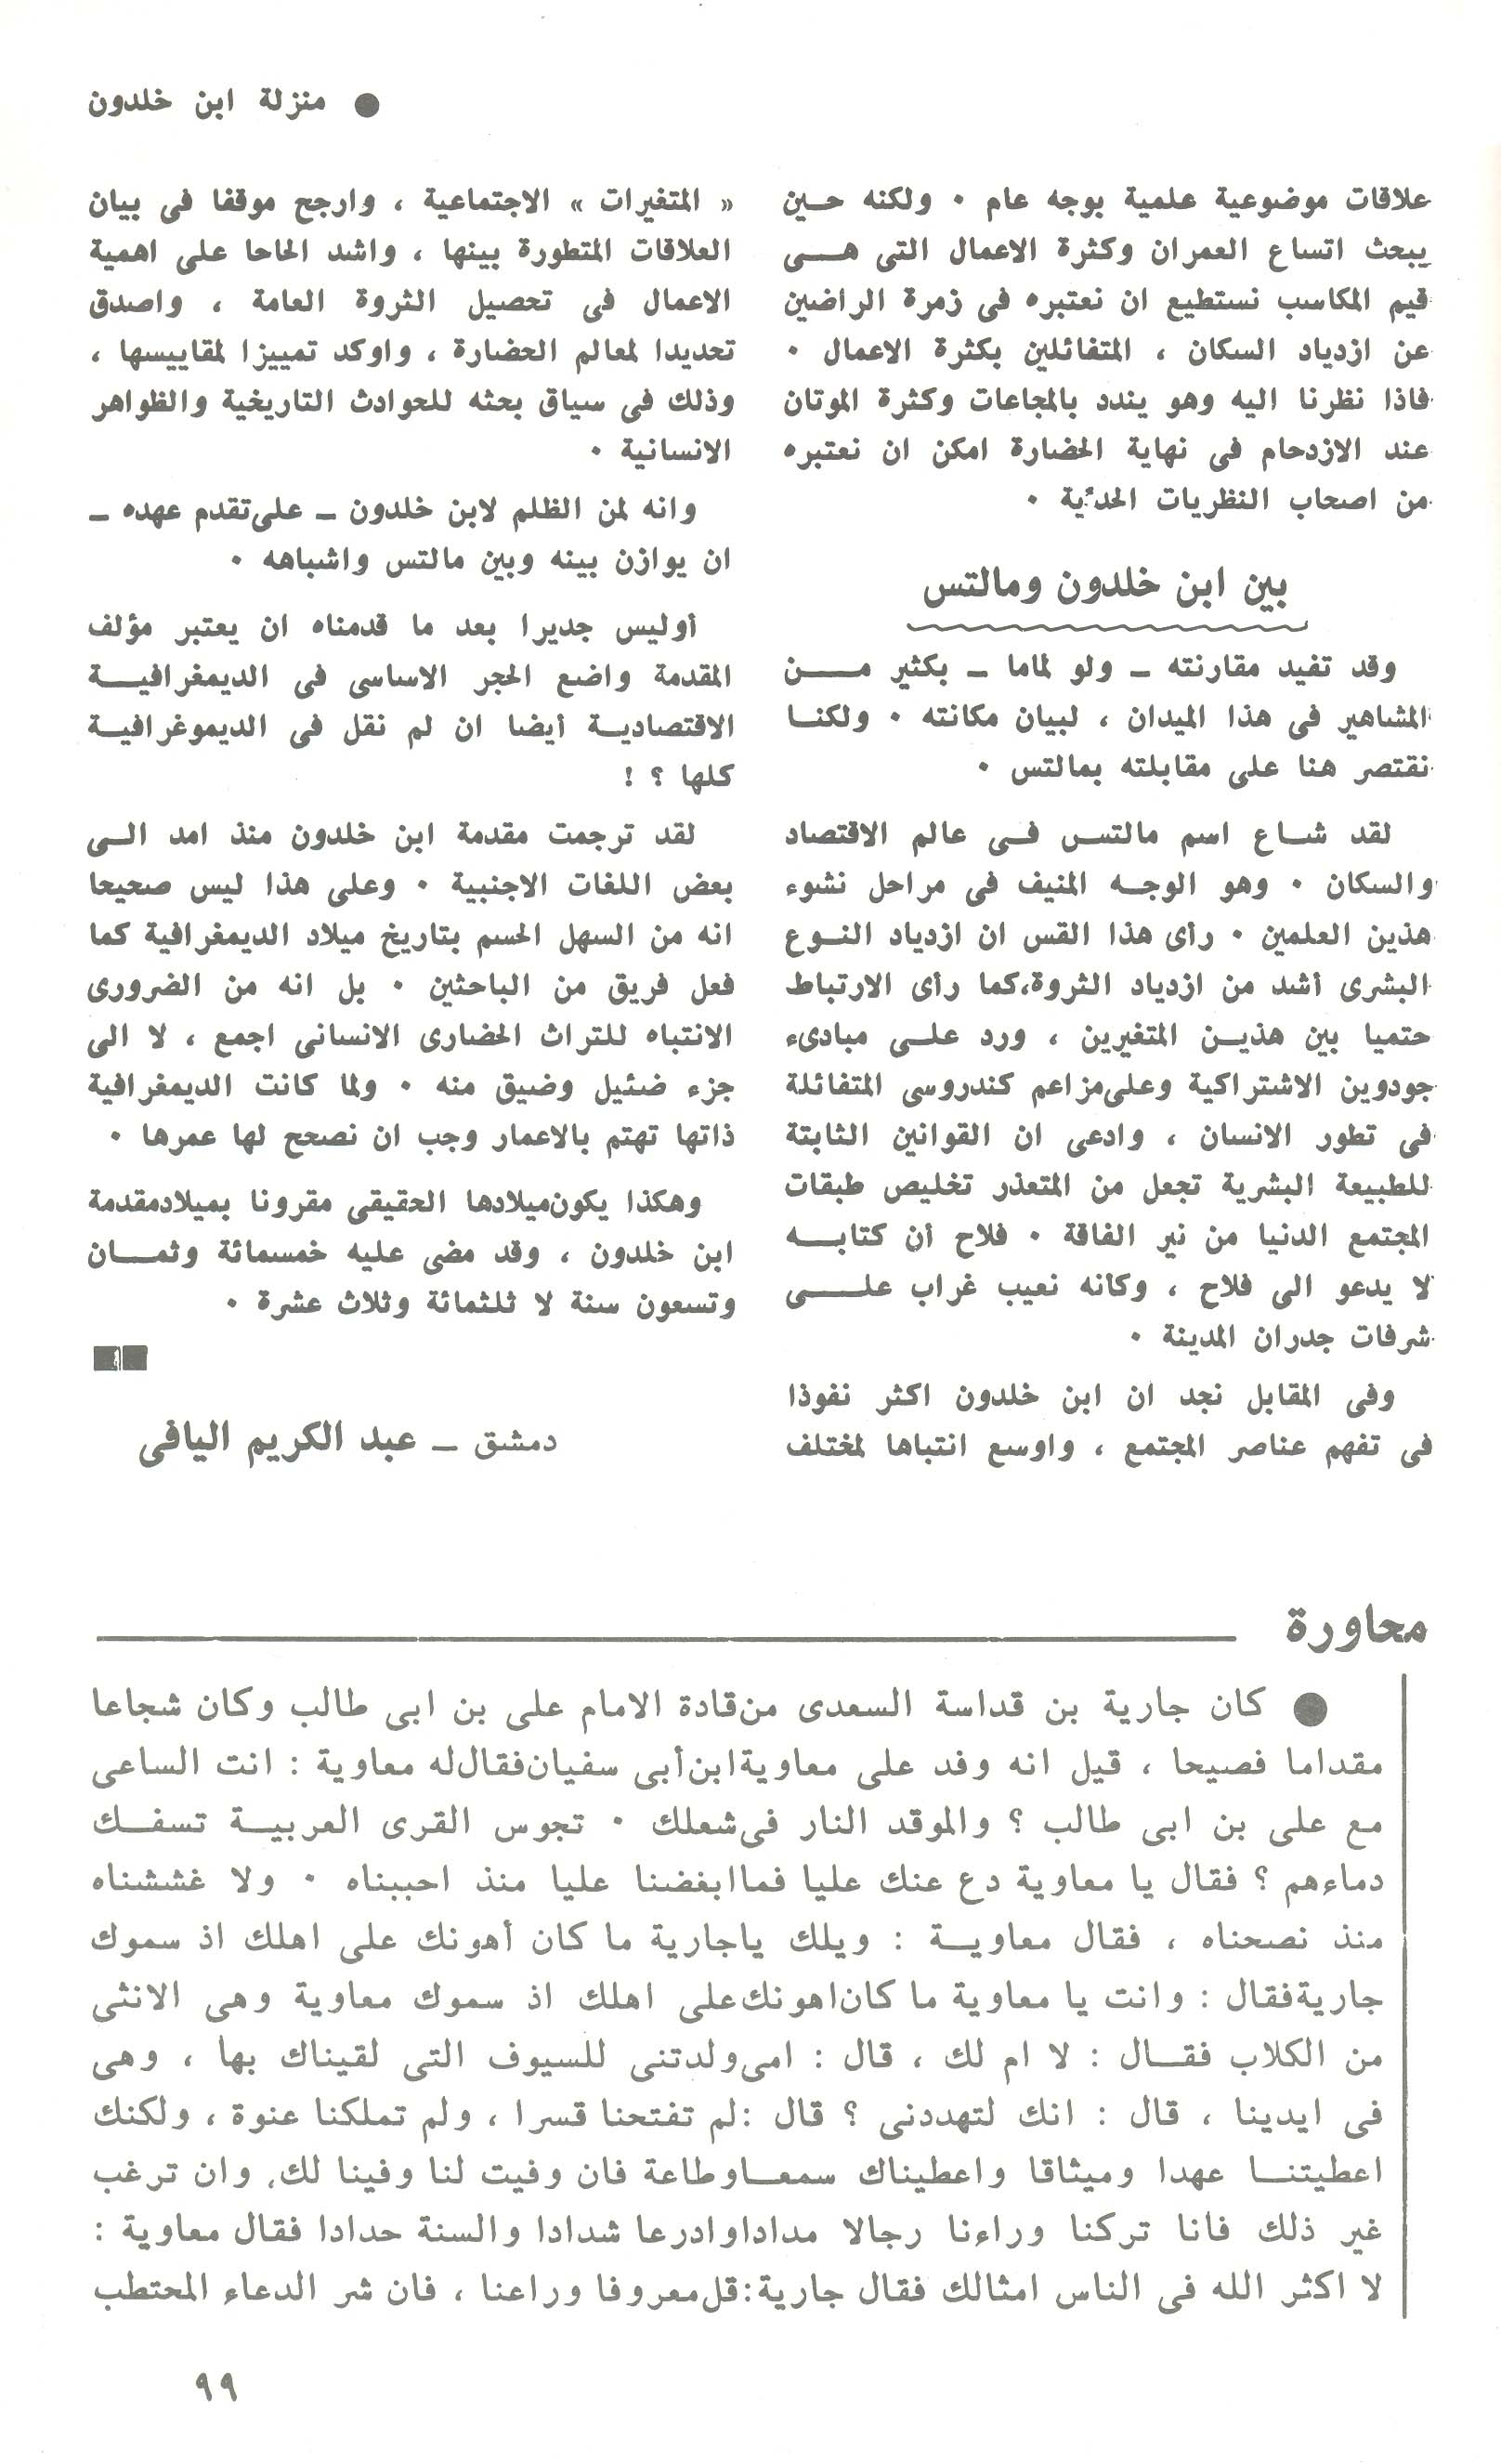 ● منزلة ابن خلدون
علاقات موضوعية علمية بوجه عام ٠ ولكنه حين
يبحث اتساع العمران وكثرة الاعمال التى هى
قيم المكاسب نستطيع ان نعتبره فى زمرة الراضين
عن ازدياد السكان ، المتفائلين بكثرة الاعمال ٠
فاذا نظرنا اليه وهو يندد بالمجاعات وكثرة الموتان
عند الازدحام فى نهاية الحضارة امكن ان نعتبره
من اصحاب النظريات الحدّية ٠
بين ابن خلدون ومالتس
وقد تفيد مقارنته ـ ولو لماما ـ بكثير من
المشاهير فى هذا الميدان ، لبيان مكانته ٠ ولكنا
نقتصر هنا على مقابلته بمالتس ٠
لقد شاع اسم مالتس فى عالم الاقتصاد
والسكان ٠ وهو الوجه المنيف فى مراحل نشوء
هذين العلمين ٠ رأى هذا القس ان ازدياد النوع
البشرى أشد من ازدياد الثروة،كما رأى الارتباط
حتميا بين هذين المتغيرين ، ورد على مبادىء
جودوين الاشتراكية وعلى مزاعم كندروسى المتفائلة
فى تطور الانسان ، وادعى ان القوانين الثابتة
للطبيعة البشرية تجعل من المتعذر تخليص طبقات
المجتمع الدنيا من نير الفاقة ٠ فلاح أن كتابه
لا يدعو الى فلاح ، وكانه نعيب غراب على
شرفات جدران المدينة ٠
وفى المقابل نجد ان ابن خلدون اكثر نفوذا
فى تفهم عناصر المجتمع ، واوسع انتباها لمختلف
« المتغيرات » الاجتماعية ، وارجح موقفا فى بيان
العلاقات المتطورة بينها ، واشد الحاحا على اهمية
الاعمال فى تحصيل الثروة العامة ، واصدق
تحديدا لمعالم الحضارة ، واوكد تمييزا لمقاييسها ،
وذلك فى سياق بحثه للحوادث التاريخية والظواهر
الانسانية ٠
وانه لمن الظلم لابن خلدون ـ على تقدم عهده ـ
ان يوازن بينه وبين مالتس واشباهه ٠
أوليس جديرا بعد ما قدمناه ان يعتبر مؤلف
المقدمة واضع الحجر الاساسى فى الديمغرافية
الاقتصادية أيضا ان لم نقل فى الديموغرافية
كلها ؟ !
لقد ترجمت مقدمة ابن خلدون منذ امد الى
بعض اللغات الاجنبية ٠ وعلى هذا ليس صحيحا
انه من السهل الحسم بتاريخ ميلاد الديمغرافية كما
فعل فريق من الباحثين ٠ بل انه من الضرورى
الانتباه للتراث الحضارى الانسانى اجمع ، لا الى
جزء ضئيل وضيق منه ٠ ولما كانت الديمغرافية
ذاتها تهتم بالاعمار وجب ان نصحح لها عمرها ٠
وهكذا يكون ميلادها الحقيقى مقرونا بميلاد مقدمة
ابن خلدون ، وقد مضى عليه خمسمائة وثمان
وتسعون سنة لا ثلثمائة وثلاث عشرة ٠
دمشق ـ عبد الكريم اليافى
محاورة
● كان جارية بن قداسة السعدى من قادة الامام على بن ابى طالب وكان شجاعا
مقداما فصيحا ، قيل انه وفد على معاوية ابن أبى سفيان فقال له معاوية : انت الساعى
مع على بن ابى طالب ؟ والموقد النار فى شعلك ٠ تجوس القرى العربية تسفك
دماءهم ؟ فقال يا معاوية دع عنك عليا فما ابغضنا عليا منذ احببناه ٠ ولا غششناه
منذ نصحناه ، فقال معاوية : ويلك ياجارية ما كان أهونك على اهلك اذ سموك
جارية فقال : وانت يا معاوية ما كان اهونك على اهلك اذ سموك معاوية وهى الانثى
من الكلاب فقال : لا ام لك ، قال : امى ولدتنى للسيوف التى لقيناك بها ، وهى
فى ايدينا ، قال : انك لتهددنى ؟ قال :لم تفتحنا قسرا ، ولم تملكنا عنوة ، ولكنك
اعطيتنا عهدا وميثاقا واعطيناك سمعا وطاعة فان وفيت لنا وفينا لك، وان ترغب
غير ذلك فانا تركنا وراءنا رجالا مدادا وادرعا شدادا والسنة حدادا فقال معاوية :
لا اكثر الله فى الناس امثالك فقال جارية:قل معروفا وراعنا ، فان شر الدعاء المحتطب
٩٩